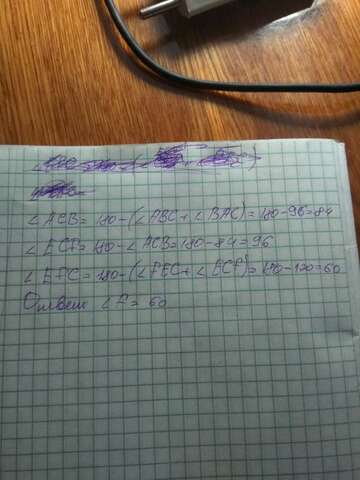 ∠ACB = 180-(∠ABC+∠BAC)=180-96=84
∠ECF=180-∠ACB=180-84=96
∠EFC=180-(∠FEC+∠ECF)=180-120=60
Ответ ∠F= 60